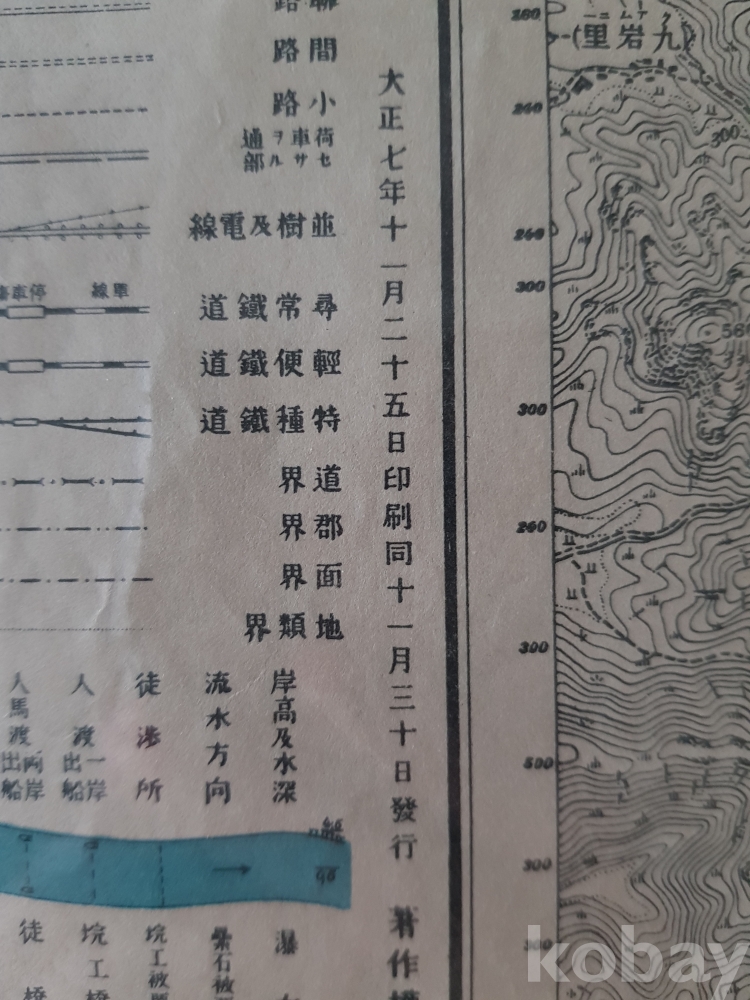 九岩里
280
240
300
240
300
300
240
300
500
300
300
大正七年十一月二十五日印刷同十一月三十日發行
著作權
聯路
間路
小路
荷車ヲ通
セサル部
並樹及電線
單線
停車
尋常鐵道
輕便鐵道
特種鐵道
道界
郡界
面界
地類界
岸高及水深
流水方向
徒渉所
人渡一岸出船
人馬渡両岸出船
瀑
石被
工被
工橋
徒橋
kobay